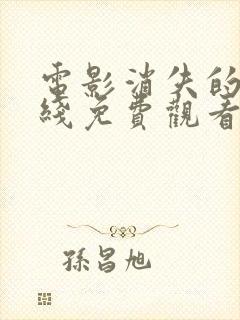 電影消失的
綫免費觀看
孫昌旭